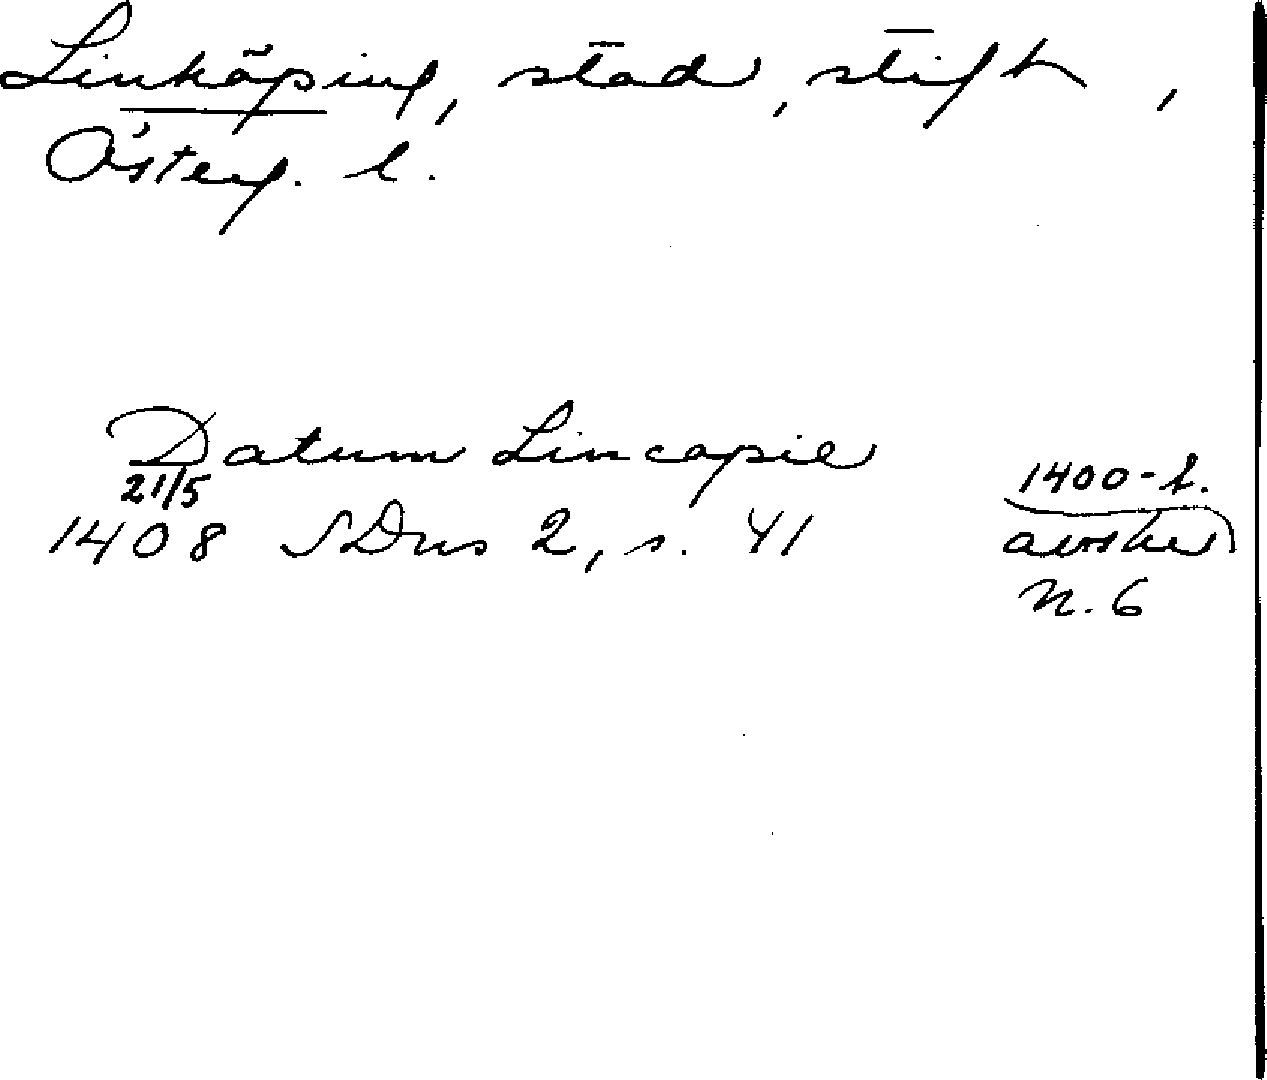 Linköping, stad, stift,
Österg. l.
Datum Lincapie
21/5
1408 SDns 2, s. 41
1400-t.
avskr
n. 6